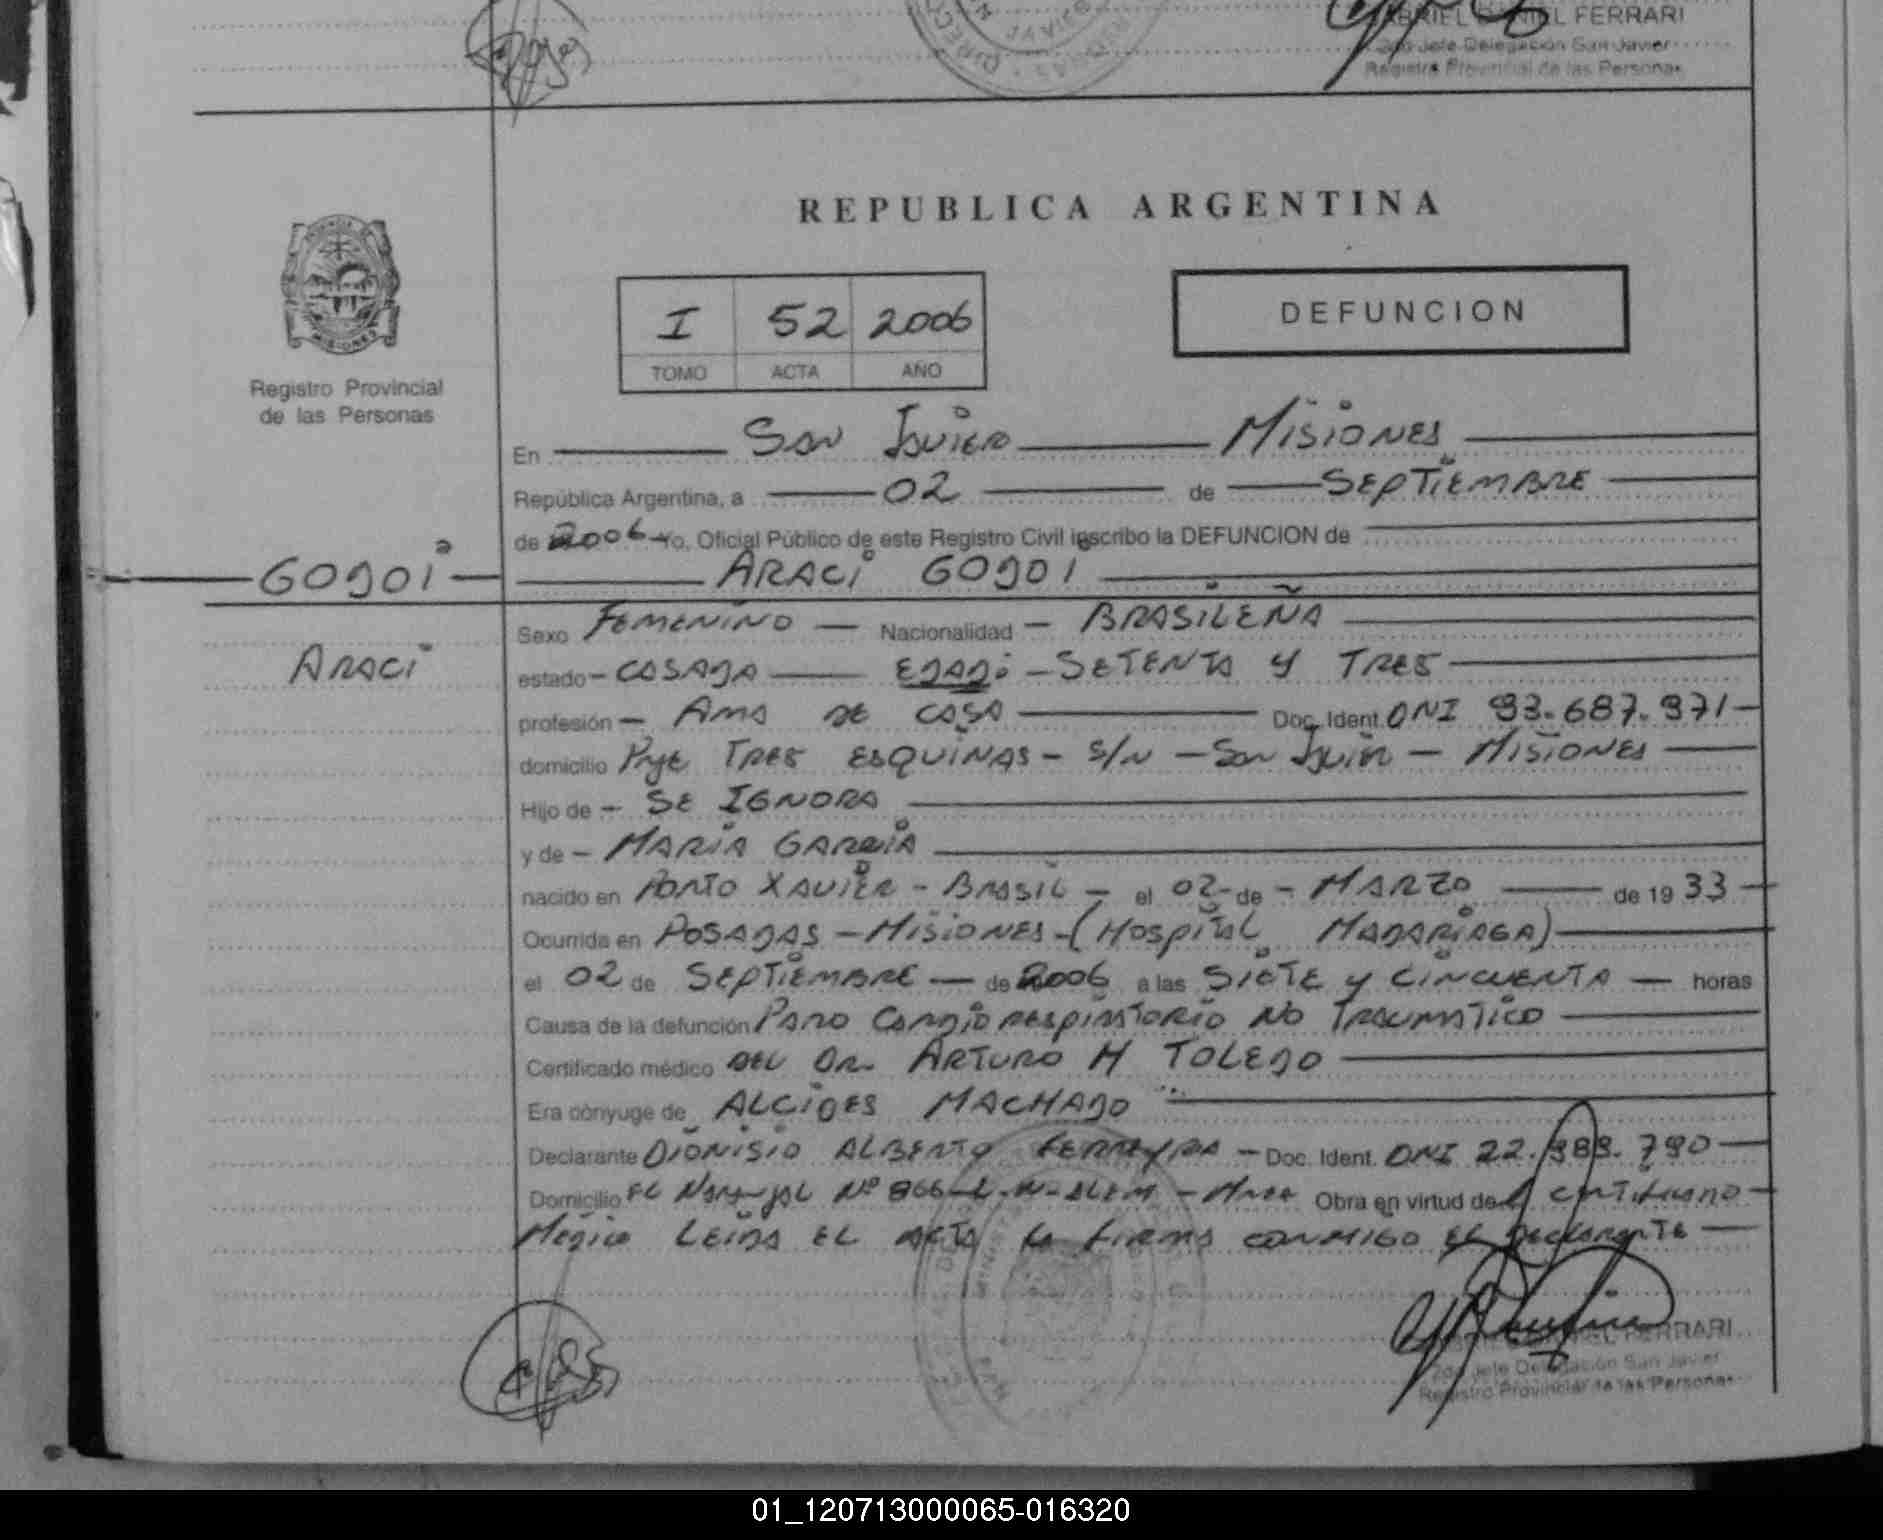 GABRIEL DANIEL FERRARI
2do Jefe Delegación San Javier
Registro Provincial de las Personas
REPUBLICA ARGENTINA
I 52 2006
TOMO ACTA AÑO
DEFUNCION
Registro Provincial
de las Personas
En San Javier Misiones
República Argentina, a 02 de Septiembre
de 2006 Yo, Oficial Público de este Registro Civil inscribo la DEFUNCION de
GODOI
ARACI GODOI
ARACI
Sexo Femenino — Nacionalidad — BRASILEÑA
estado — CASADA — EDAD: — SETENTA Y TRES
profesión — AMA DE CASA — Doc. Ident. DNI 93.687.971 —
domicilio Pje TRES ESQUINAS - S/N - San Javier - MISIONES
Hijo de — SE IGNORA
y de — MARIA GARCIA
nacido en PORTO XAVIER - BRASIL — el 02 - de - MARZO — de 19 33 —
Ocurrida en POSADAS - MISIONES - (HOSPITAL MADARIAGA)
el 02 de SEPTIEMBRE — de 2006 a las SIETE Y CINCUENTA — horas
Causa de la defunción PARO CARDIORESPIRATORIO NO TRAUMATICO
Certificado médico DEL DR. ARTURO H TOLEDO
Era cónyuge de ALCIDES MACHADO
Declarante DIONISIO ALBERTO FERREYRA — Doc. Ident. DNI 22.989.790 —
Domicilio EL Naranjal Nº 866 - L.N. ALEM - Mnes Obra en virtud de Certificado
Médico LEIDA EL ACTA LA FIRMA CONMIGO EL DECLARANTE
GABRIEL DANIEL FERRARI
2do Jefe Delegación San Javier
Registro Provincial de las Personas
01_120713000065-016320